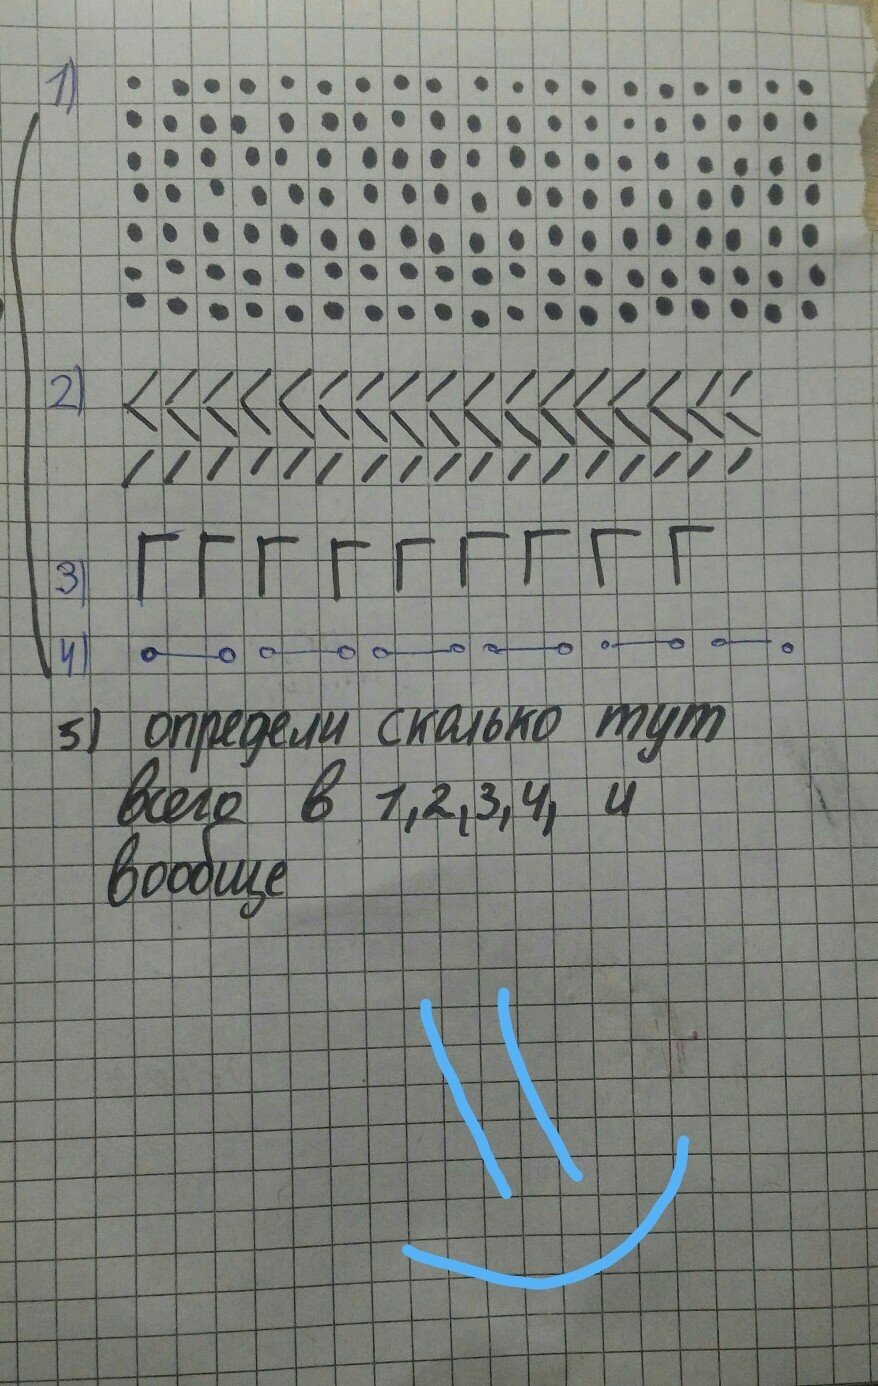 1)
2)
3)
4)
5) определи сколько тут
всего в 1,2,3,4, и
вообще